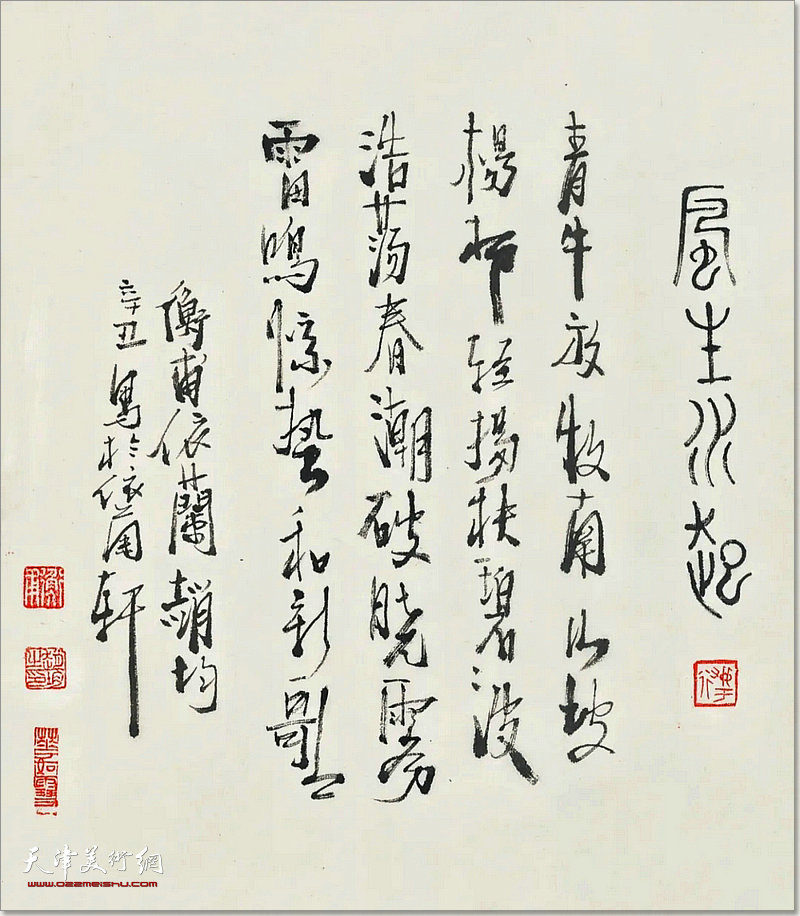 風生水起
青牛放牧南山坡
楊柳輕揚扶碧波
浩蕩春潮破曉霧
雷鳴驚蟄和新歌
衡甫依蘭趙均
辛丑 寫於依蘭軒
天津美術網
www.022meishu.com